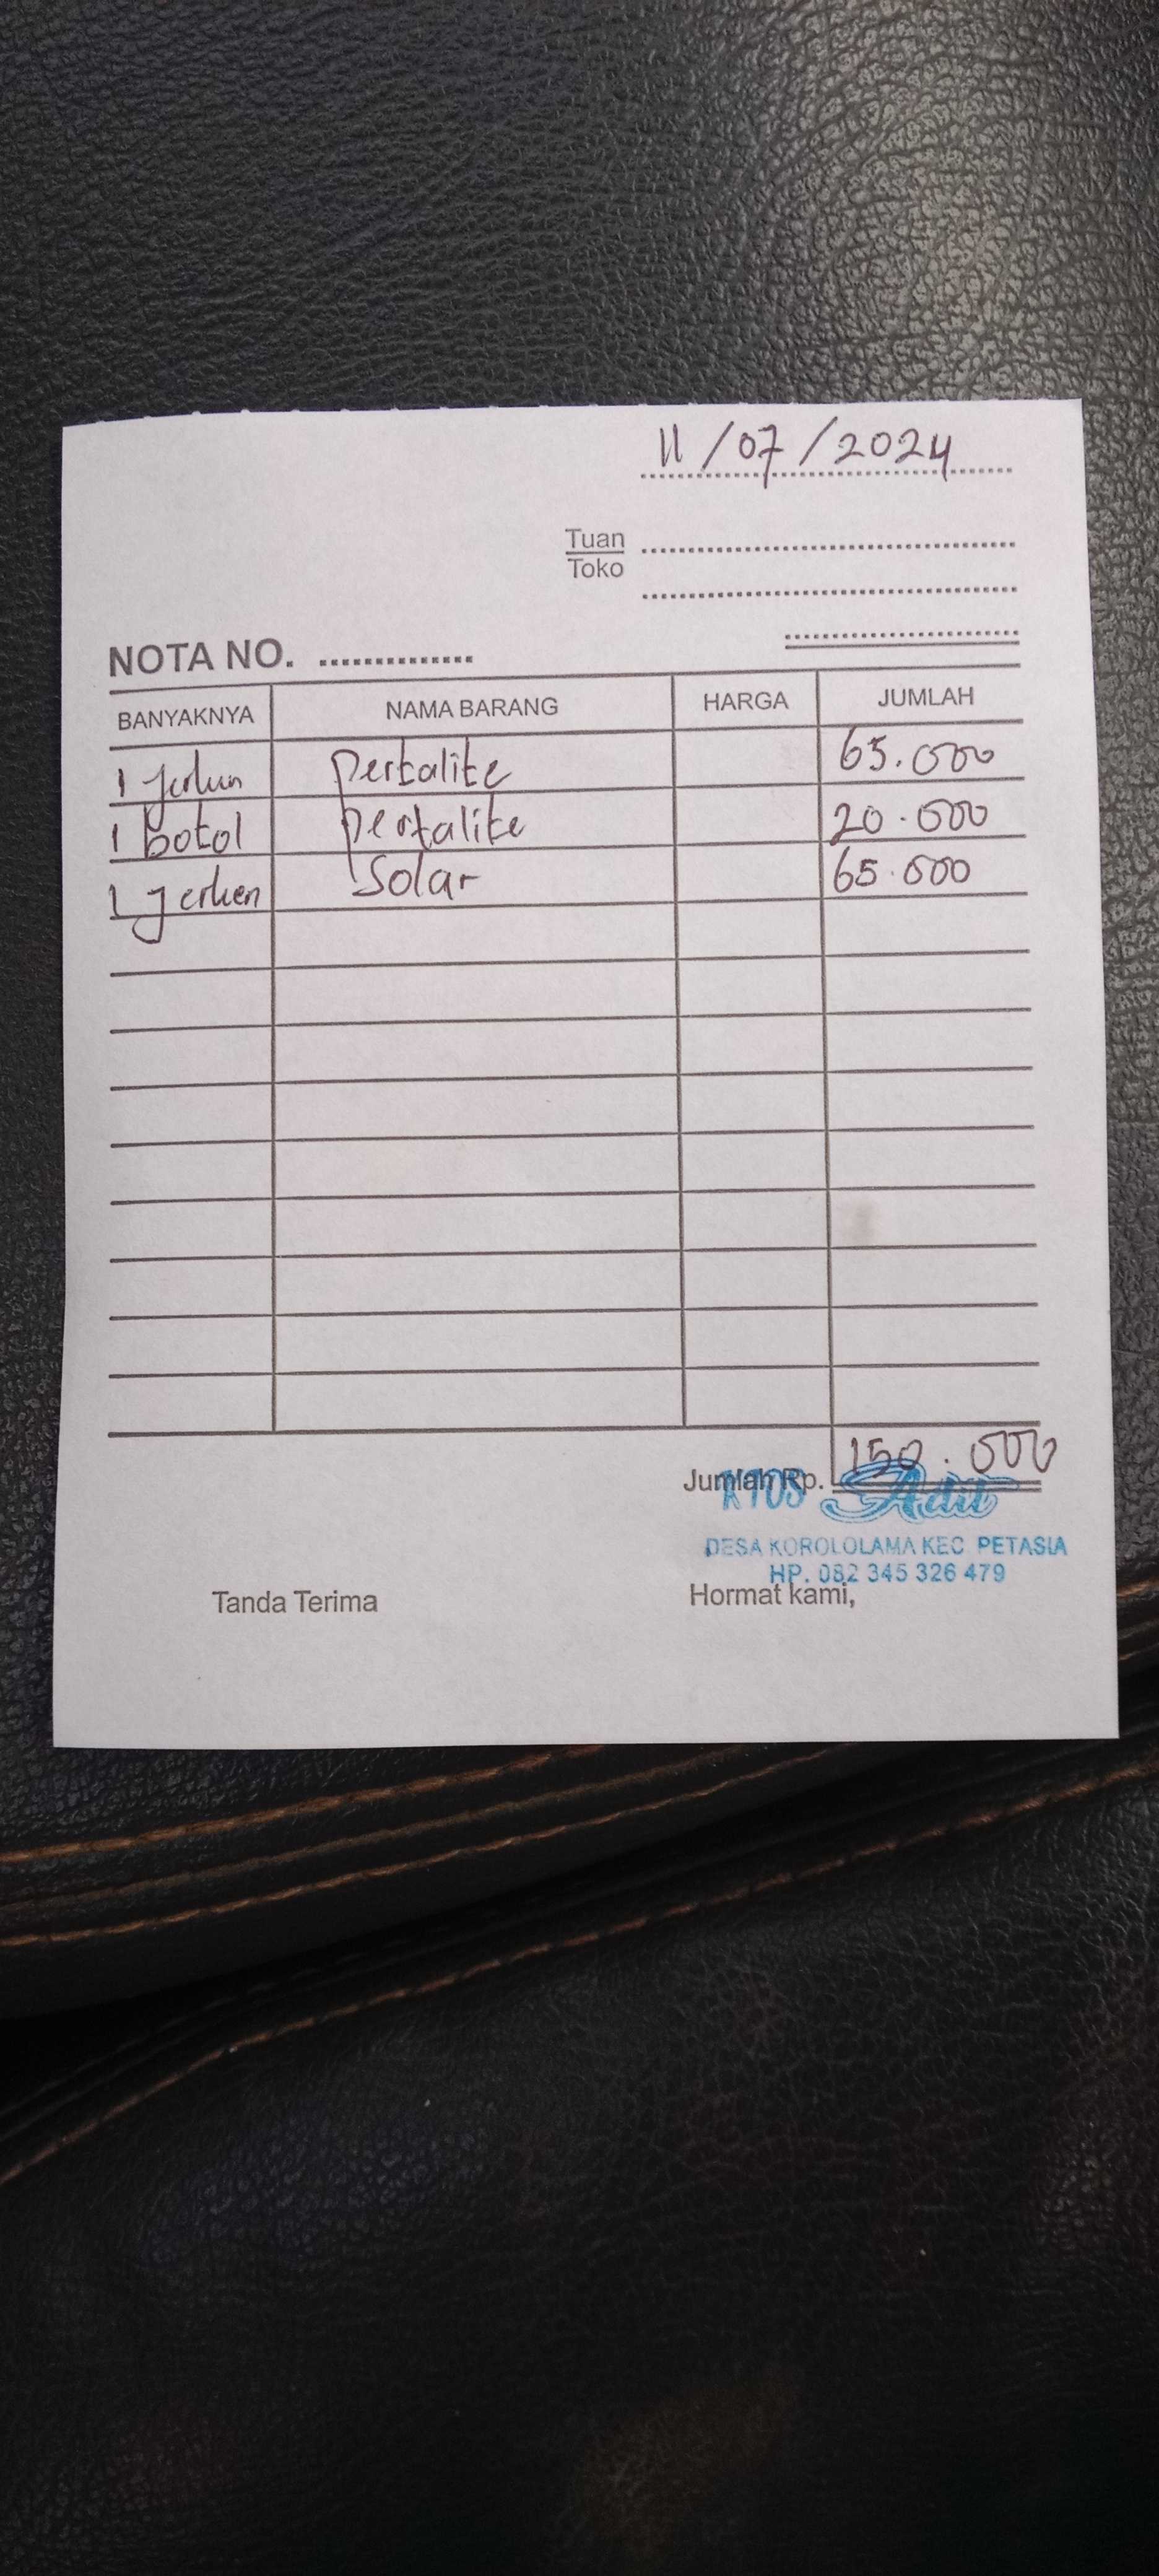 11/07/2024
Tuan
Toko
NOTA NO. ..............
BANYAKNYA NAMA BARANG HARGA JUMLAH
1 jerken Pertalite 65.000
1 botol Pertalite 20.000
1 jerken Solar 65.000
Jumlah Rp. 150.000
KIOS Adit
DESA KOROLOLAMA KEC PETASIA
HP. 082 345 326 479
Tanda Terima Hormat kami,